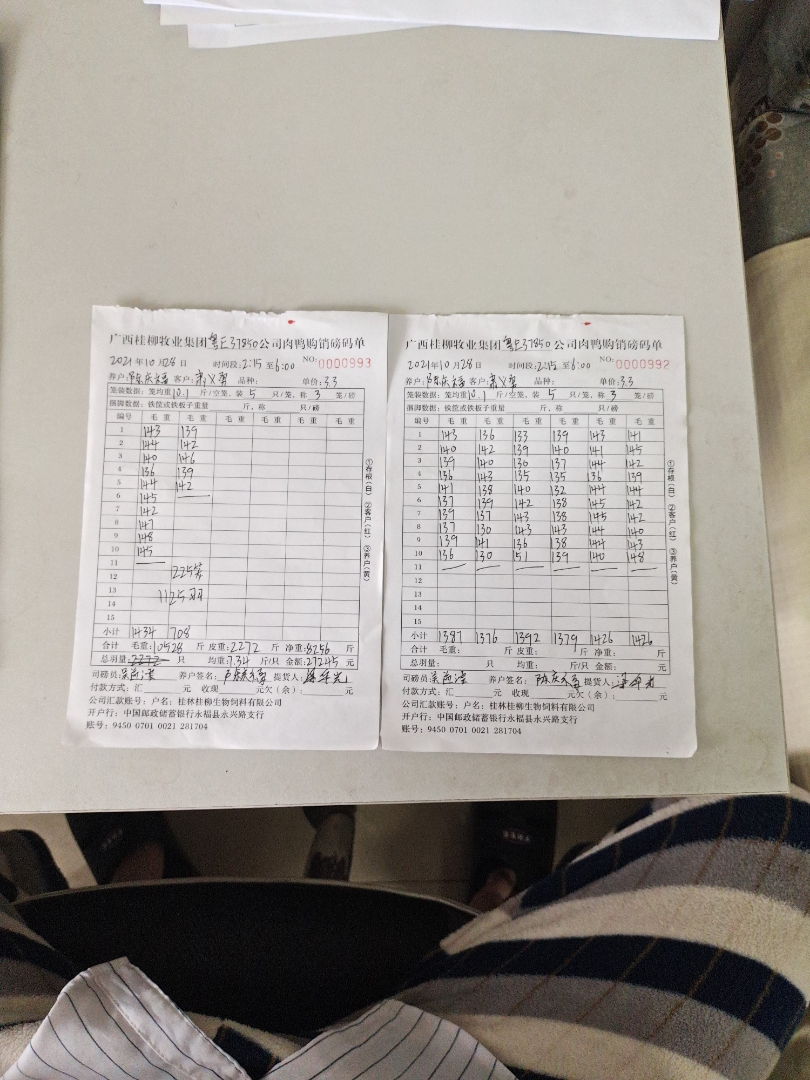 广西桂柳牧业集团粤E37850公司肉鸭购销磅码单
2021年10月28日 时间段:2:15至6:00 NO:0000993
养户: 客户: 品种: 单价:3.3
笼装数据:笼均重10.1斤/空笼、装5只/笼,称3笼/磅
捆脚数据:铁筐或铁板子重量 斤,称 只/磅
编号 毛重 毛重 毛重 毛重 毛重 毛重
1 143 139
2 144 142
3 140 146
4 136 139
5 144 142
6 145
7 142
8 147
9 148
10 145
11
12 225笼
13 1125羽
14
15
小计 1434 708
合计 毛重:10528斤 皮重:2272斤 净重:8256斤
总羽量:2272只 均重:7.34斤/只 金额:27245元
司磅员: 养户签名: 提货人:
付款方式:汇 元 收现 元欠(余): 元
公司汇款账号:户名:桂林桂柳生物饲料有限公司
开户行:中国邮政储蓄银行永福县永兴路支行
账号:9450 0701 0021 281704
①存根(白) ②客户(红) ③养户(黄)
广西桂柳牧业集团粤E37850公司肉鸭购销磅码单
2021年10月28日 时间段:2:15至6:00 NO:0000992
养户: 客户: 品种: 单价:3.3
笼装数据:笼均重10.1斤/空笼、装5只/笼,称3笼/磅
捆脚数据:铁筐或铁板子重量 斤,称 只/磅
编号 毛重 毛重 毛重 毛重 毛重 毛重
1 143 136 133 139 143 141
2 140 142 139 140 141 145
3 139 140 130 137 144 142
4 136 143 135 135 136 139
5 141 138 140 132 144 144
6 137 139 142 138 145 142
7 139 137 143 138 145 142
8 137 130 143 143 144 140
9 139 141 136 138 144 143
10 136 130 151 139 140 148
11
12
13
14
15
小计 1387 1376 1392 1379 1426 1426
合计 毛重: 斤 皮重: 斤 净重: 斤
总羽量: 只 均重: 斤/只 金额: 元
司磅员: 养户签名: 提货人:
付款方式:汇 元 收现 元欠(余): 元
公司汇款账号:户名:桂林桂柳生物饲料有限公司
开户行:中国邮政储蓄银行永福县永兴路支行
账号:9450 0701 0021 281704
①存根(白) ②客户(红) ③养户(黄)